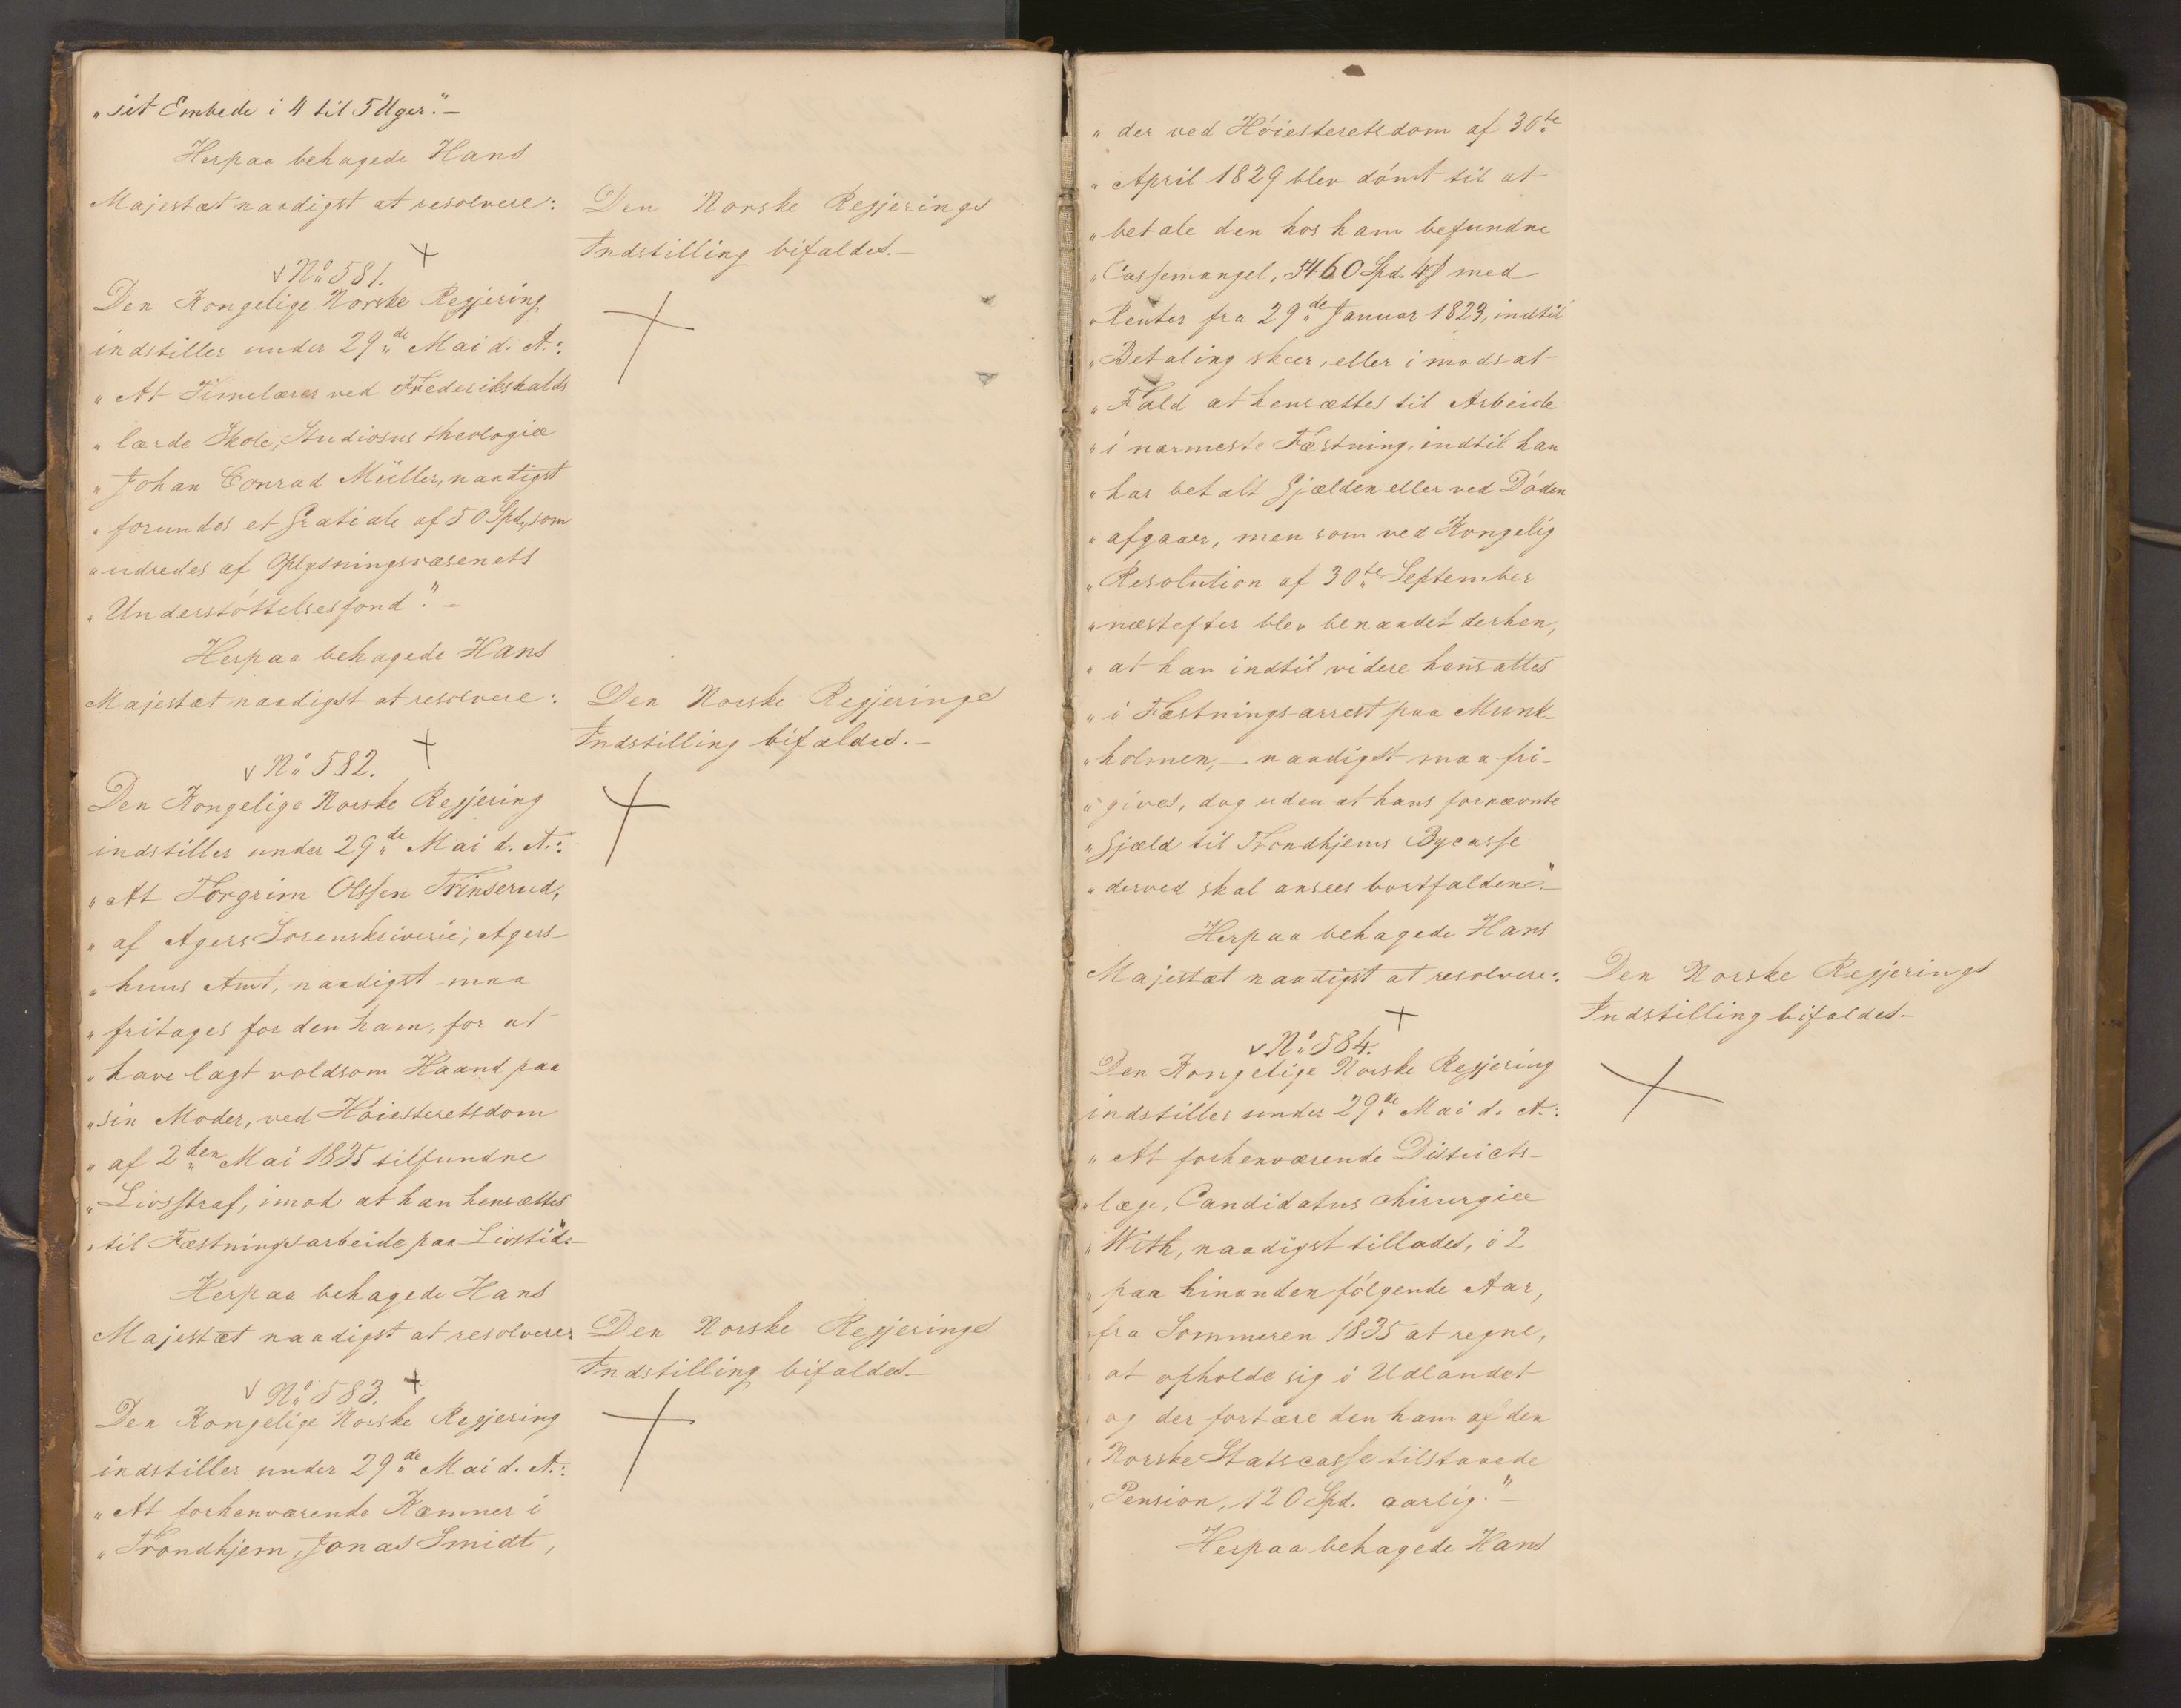 „sit Embede i 4 til 5 Uger."—
Herpaa behagede Hans
Majestæt naadigst at resolvere:
Den Norske Regjerings
Indstilling bifaldes.—
No 581.
Den Kongelige Norske Regjering
indstiller under 29de Mai d. A.:
„At Timelærer ved Frederikshalds
„lærde Skole, Studiosus theologiæ
„Johan Conrad Müller, naadigst
„forundes et Gratiale af 50 Spd., som
„udredes af Oplysningsvæsenets
„Understöttelsesfond."—
Herpaa behagede Hans
Majestæt naadigst at resolvere:
Den Norske Regjerings
Indstilling bifaldes.—
No 582.
Den Kongelige Norske Regjering
indstiller under 29de Mai d. A.:
„At Torgrim Olssen Trinserud,
„af Agers Sorenskriverie, Agers-
„huus Amt, naadigst maa
„fritages for den ham, for at
„have lagt voldsom Haand paa
„sin Moder, ved Höiesteretsdom
„af 2den Mai 1835 tilfundne
„Livsstraf, imod at han hensættes
„til Fæstningsarbeide paa Livstid."—
Herpaa behagede Hans
Majestæt naadigst at resolvere:
Den Norske Regjerings
Indstilling bifaldes.—
No 583.
Den Kongelige Norske Regjering
indstiller under 29de Mai d. A.:
„At forhenværende Kæmner i
„Trondhjem, Jonas Smidt,
„der ved Höiesteretsdom af 30te
„April 1829 blev dömt til at
„betale den hos ham befundne
„Cassemangel, 5460 Spd. 4 β med
„Renter fra 29de Januar 1823, indtil
„Betaling skeer, eller i modsat
„Fald at hensættes til Arbeide
„i nærmeste Fæstning, indtil han
„har betalt Gjælden eller ved Döden
„afgaaer, men som ved Kongelig
„Resolution af 30te September
„næstefter blev benaadet derhen,
„at han indtil videre hensattes
„i Fæstningsarrest paa Munk-
„holmen,— naadigst maa fri-
„gives, dog uden at hans fornævnte
„Gjæld til Trondhjems Bycasse
„derved skal ansees bortfalden."—
Herpaa behagede Hans
Majestæt naadigst at resolvere:
Den Norske Regjerings
Indstilling bifaldes—
No 584.
Den Kongelige Norske Regjering
indstiller under 29de Mai d. A.:
„At forhenværende Districts-
„læge, Candidatus chirurgiæ
„With, naadigst tillades, i 2
„paa hinanden fölgende Aar,
„fra Sommeren 1835 at regne,
„at opholde sig i Udlandet
„og der fortære den ham af den
„Norske Statscasse tilstaaede
„Pension, 120 Spd. aarlig."—
Herpaa behagede Hans